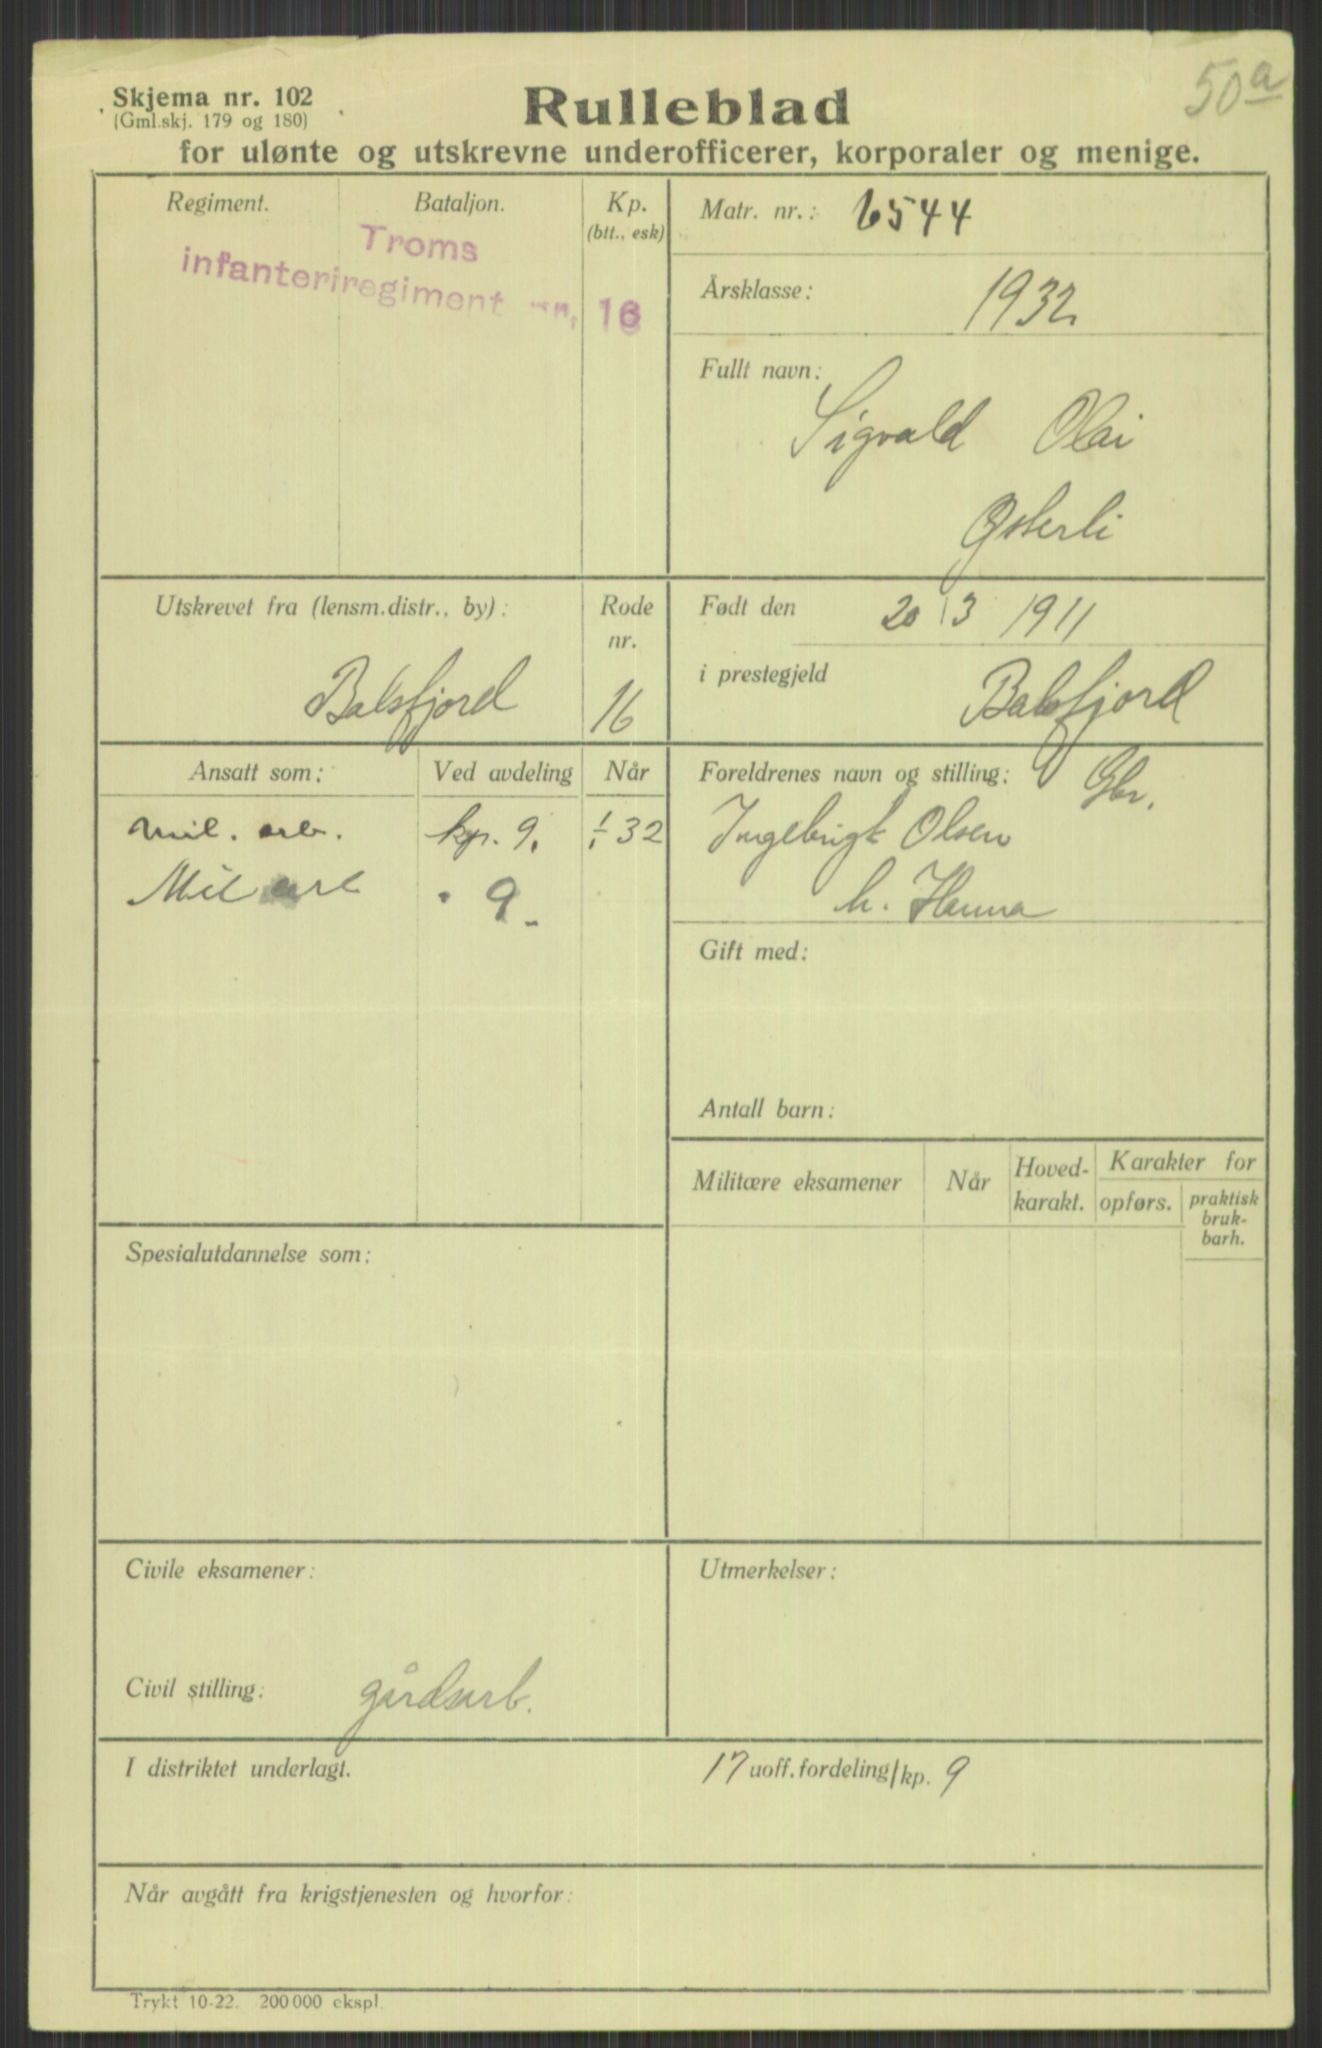 50a
Skjema nr. 102
(Gml.skj. 179 og 180)
Rulleblad
for ulønte og utskrevne underofficerer, korporaler og menige.
Regiment.
Bataljon.
Kp.
(btt., esk)
Troms
infanteriregiment nr. 16
Matr. nr.: 6544
Årsklasse: 1932
Fullt navn:
Sigvald Olai
Østerli
Utskrevet fra (lensm.distr., by):
Balsfjord
Rode
nr.
16
Født den 20/3 1911
i prestegjeld Balsfjord
Ansatt som:
Ved avdeling
Når
mil. arb. kp. 9. 1/1 32
Mil arb " 9.
Foreldrenes navn og stilling: Gbr.
Ingebrigt Olsen
h. Hanna
Gift med:
Antall barn:
Militære eksamener
Når
Hoved-
karakt.
Karakter for
opførs.
praktisk
bruk-
barh.
Spesialutdannelse som:
Civile eksamener:
Civil stilling: gårdsarb.
Utmerkelser:
I distriktet underlagt. 17 uoff.fordeling/kp. 9
Når avgått fra krigstjenesten og hvorfor:
Trykt 10-22. 200 000 ekspl.